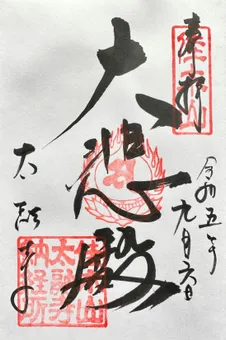 奉拝
令和五年九月六日
大悲殿
太融寺
佳木山
太融寺
納経所